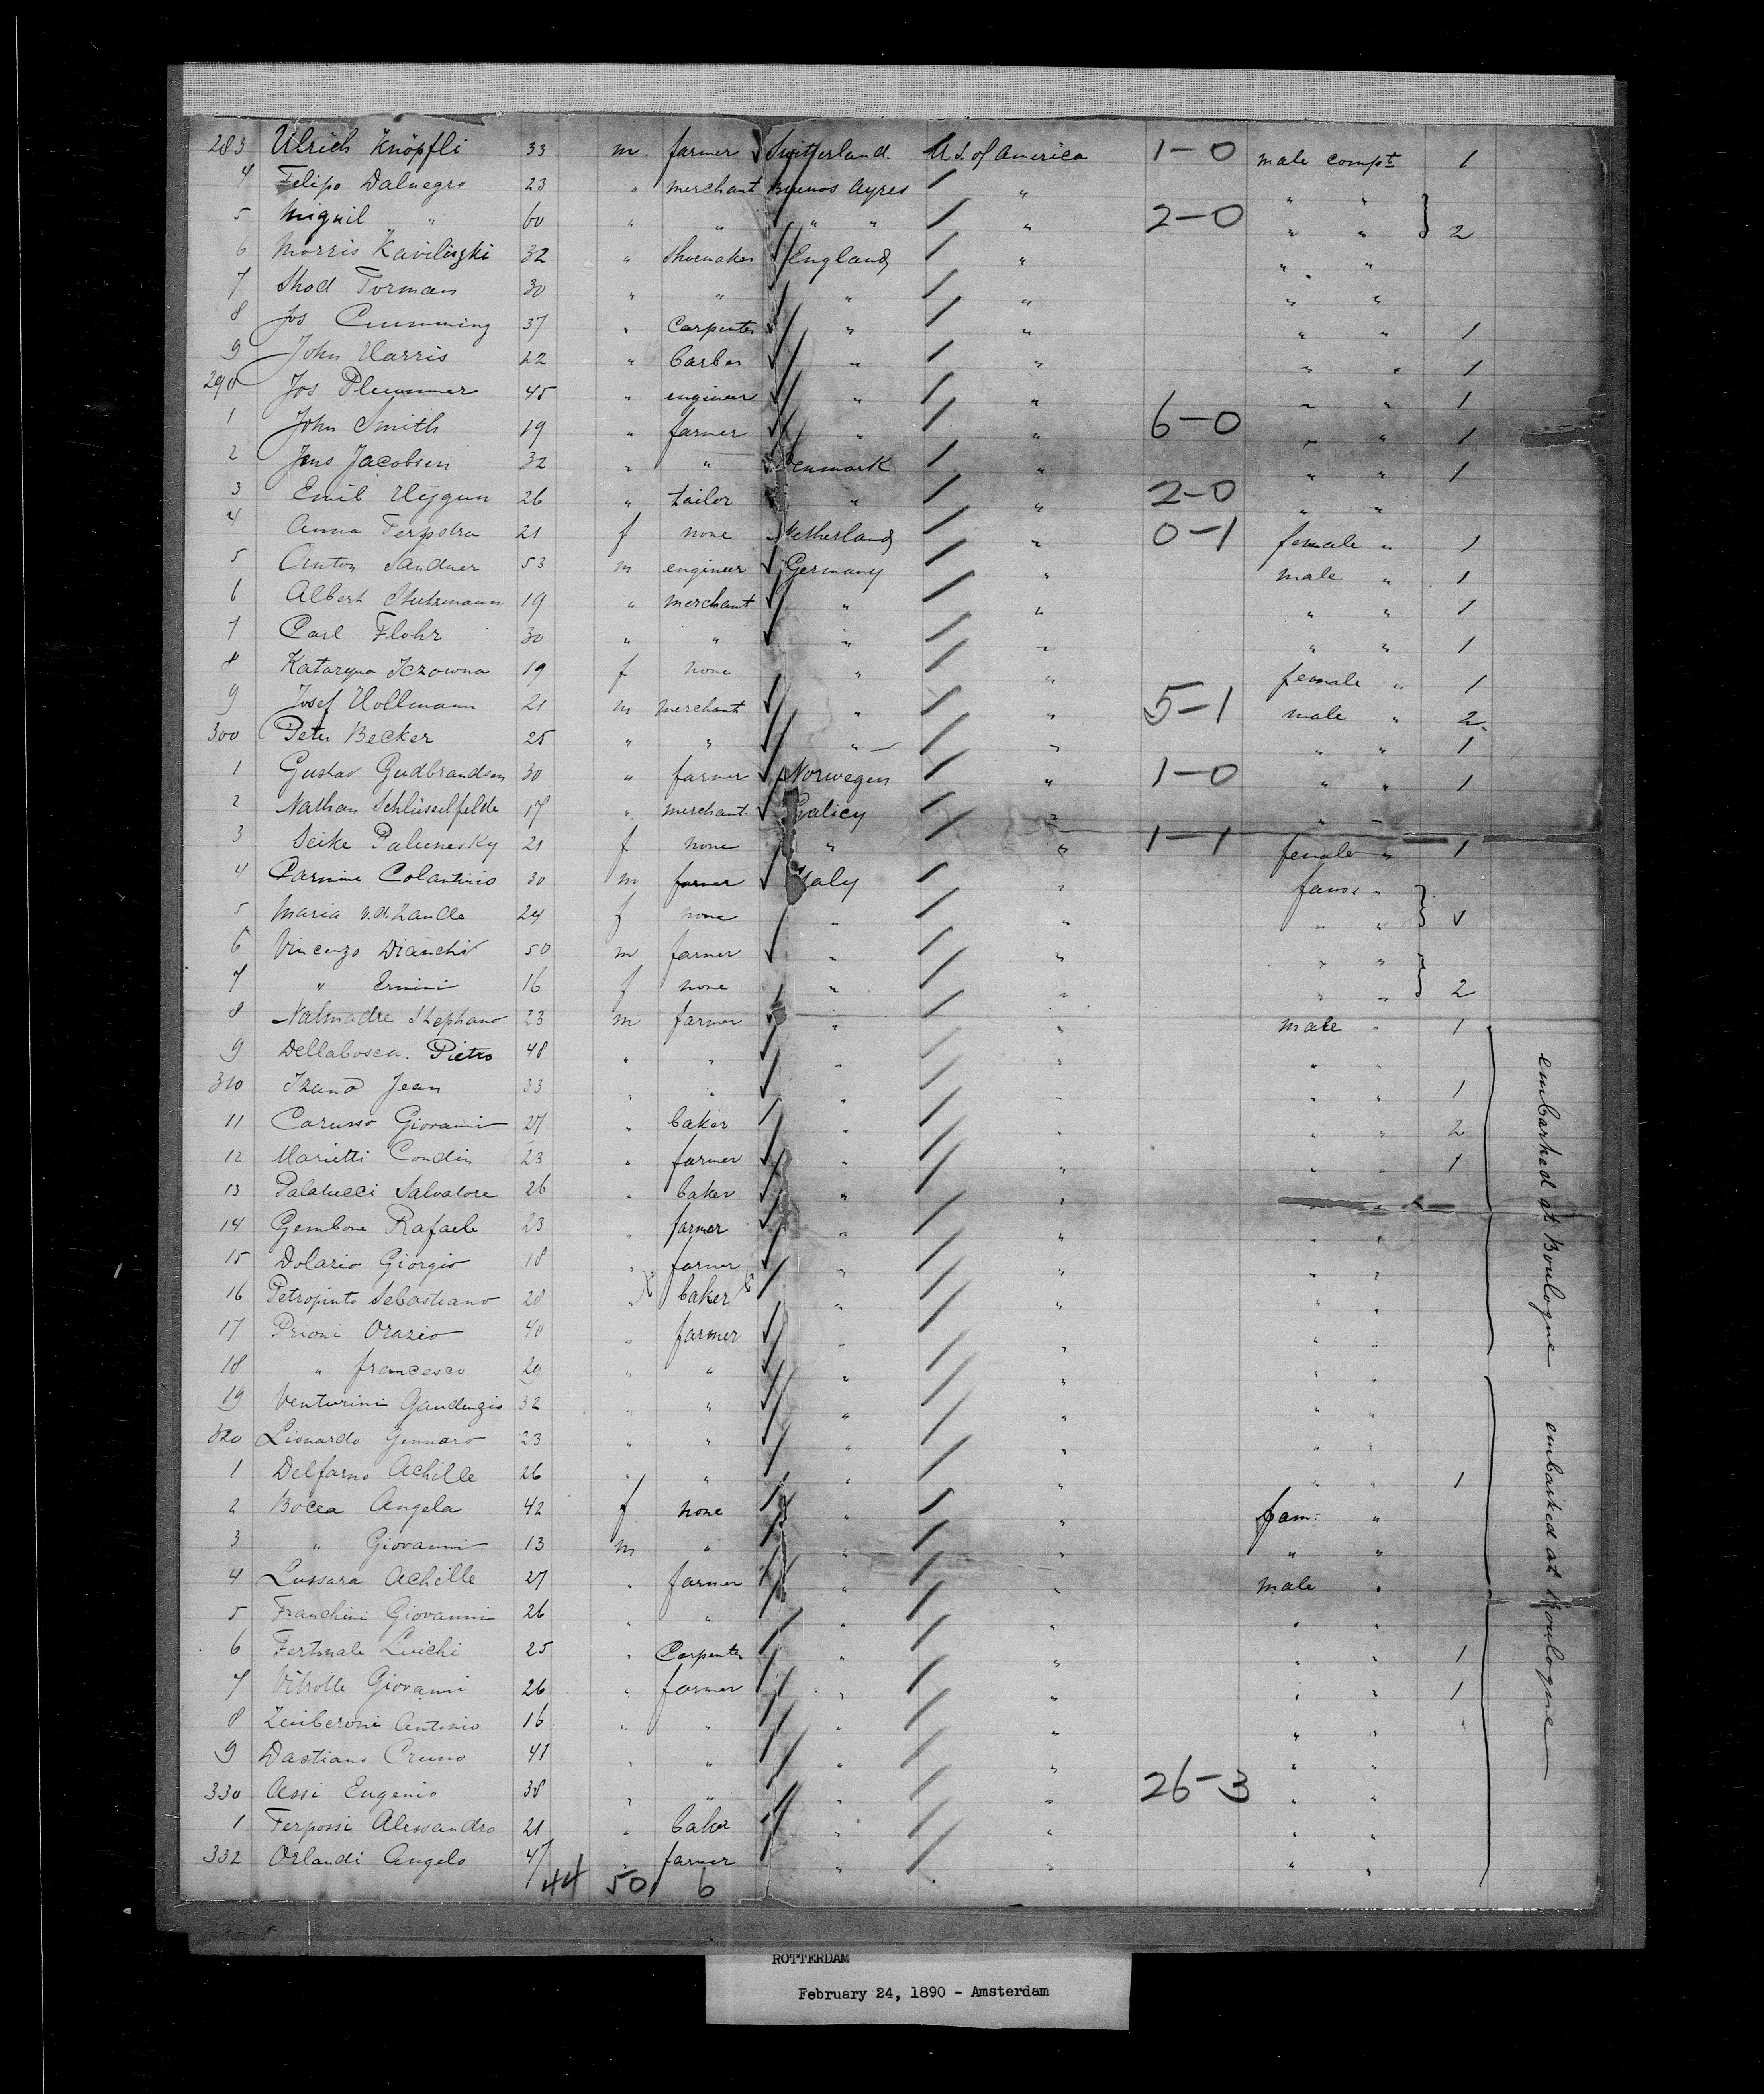 283 Ulrich Knöpfli 33 m. farmer Switzerland. U.S. of America 1-0 male compt 1
4 Felipo Dalnegro 23 " merchant Buenos Ayres " " "
5 Miguil " 60 " " " " " 2-0 " " 2
6 Morris Kavilirzki 32 " Shoemaker England " " "
7 Shod Torman 30 " " " " " "
8 Jos Cumming 37 " Carpenter " " " " 1
9 John Harris 22 " barber " " " " 1
290 Jos Plewmer 45 " engineer " " " " 1
1 John Smith 19 " farmer " " 6-0 " " 1
2 Jens Jacobsen 32 " " Denmark " " " 1
3 Emil Uygun 26 " tailor " " 2-0 " "
4 Anna Terpstra 21 f none Netherland " 0-1 female " 1
5 Anton Sandner 53 m engineer Germany " male " 1
6 Albert Stutzmann 19 " merchant " " " " 1
7 Carl Flohr 30 " " " " " " 1
8 Kataryna Iczowna 19 f none " " female " 1
9 Josef Hollmann 21 m merchant " " 5-1 male " 2
300 Peter Becker 25 " " " " " " 1
1 Gustav Gudbrandsen 30 " farmer Norwegen " 1-0 " " 1
2 Nathan Schlüsselfelde 17 " merchant Galicy " " "
3 Seike Palunesky 21 f none " " 1-1 female " 1
4 Carmine Colantinio 30 m farmer Italy " fam: "
5 Maria v.d. Zande 24 f none " " " "
6 Vincenzo Dianchi 50 m farmer " " " "
7 " Ermini 16 f none " " " " 2
8 Nalmadre Stephano 23 m farmer " " male " 1
9 Dellabosca. Pietro 48 " " " " " "
310 Izano Jean 33 " " " " " " 1
11 Carusso Giovanni 27 " baker " " " " 2
12 Marietti Condin 23 " farmer " " " " 1
13 Palatucci Salvatore 26 " baker " " " "
14 Gembone Rafaele 23 " farmer " " " "
15 Dolario Giorgio 18 " farmer " " " "
16 Petropinto Sebastiano 28 " baker " " " "
17 Prioni Orazio 40 " farmer " " " "
18 " francesco 29 " " " " " "
19 Venturini Gaudenzio 32 " " " " " "
320 Lionardo Gennaro 23 " " " " " "
1 Delfarno Achille 26 " " " " " " 1
2 Bocca Angela 42 f none " " fam: "
3 " Giovanni 13 m " " " " "
4 Lussara Achille 27 " farmer " " male "
5 Franchini Giovanni 26 " " " " " "
6 Fertonale Luichi 25 " Carpenter " " " " 1
7 Vitrolle Giovanni 26 " farmer " " " " 1
8 Zeniberoni Antonio 16 " " " " " "
9 Dastiano Cruno 41 " " " " " "
330 Assi Eugenio 38 " " " " 26-3 " "
1 Ferpossi Alessandro 21 " baker " " " "
332 Orlandi Angelo 47 " farmer " " " "
44 50 6
embarked at Boulogne
embarked at Boulogne
ROTTERDAM
February 24, 1890 - Amsterdam